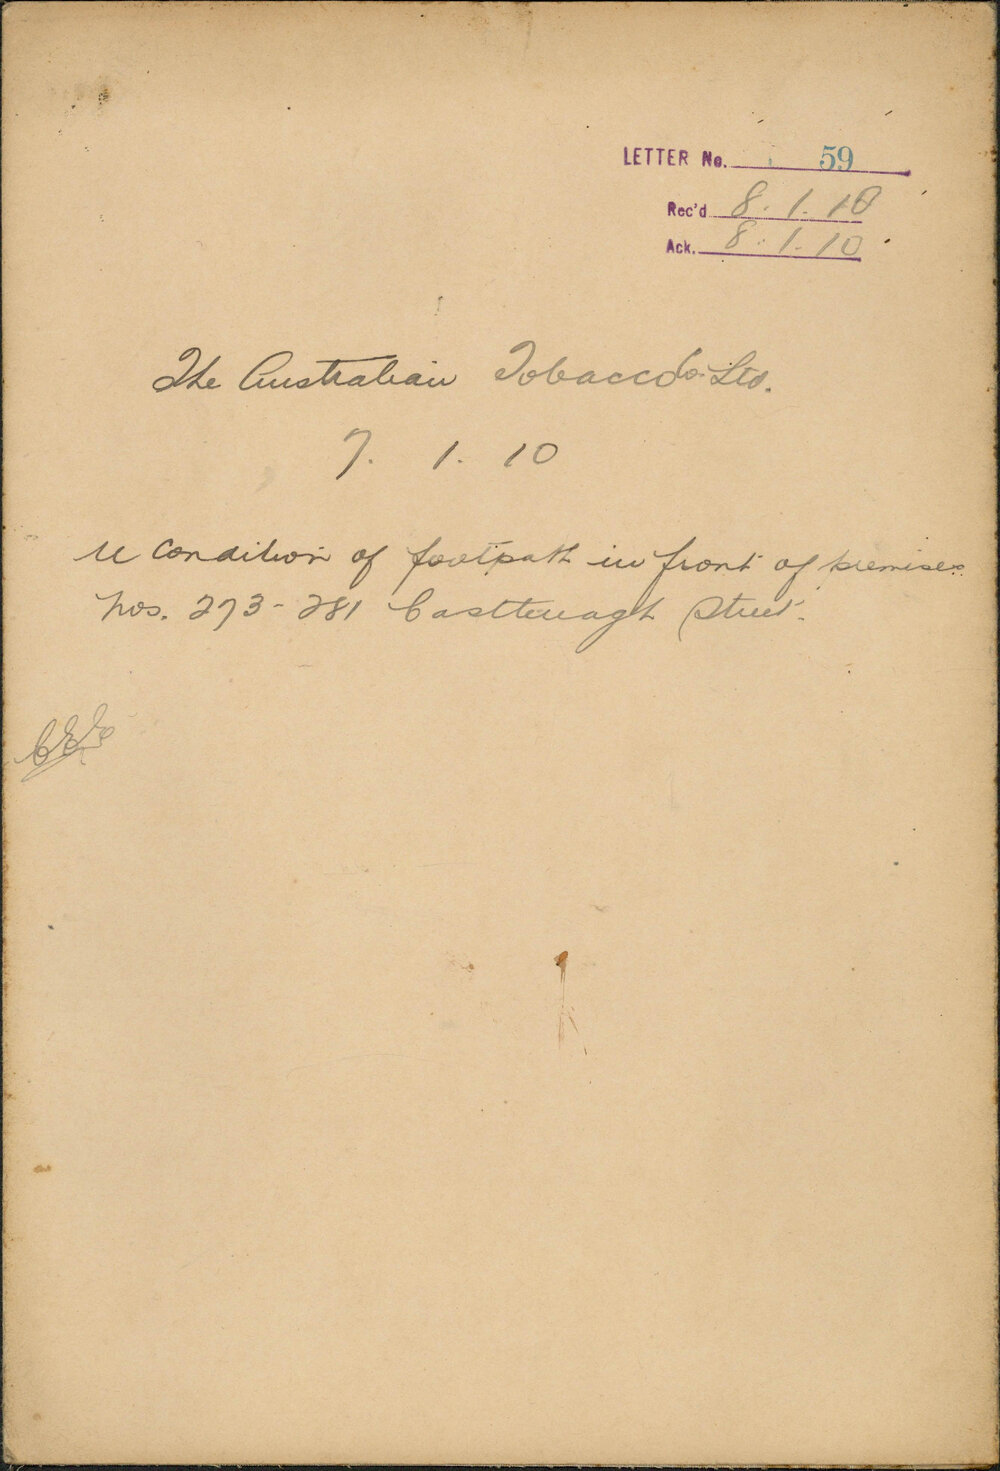 LETTER No. 59
Rec'd 8.1.10
Ack. 8.1.10
The Australian Tobacco Co. Ltd.
7. 1. 10
re condition of footpath in front of premises
Nos. 273-281 Castlereagh Street.